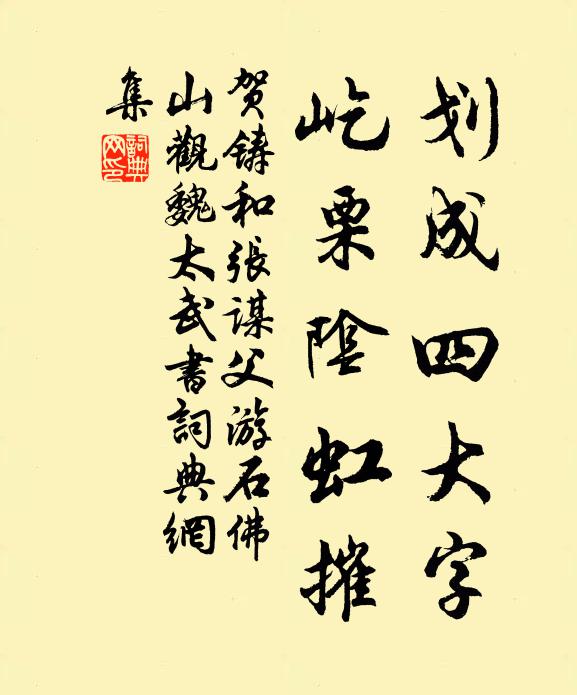 划成四大字
屹栗陰虹摧
贺鋳和張謀父游石佛
山觀魏太武書詞典網
集
詞典
网印